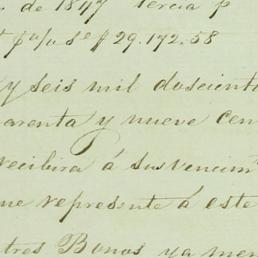 de 1877 tercia p
$ 29.172.58
y seis mil doscient
arenta y nueve cen
recibira á sus vencim
ue represente á este
tres Bonos ya men